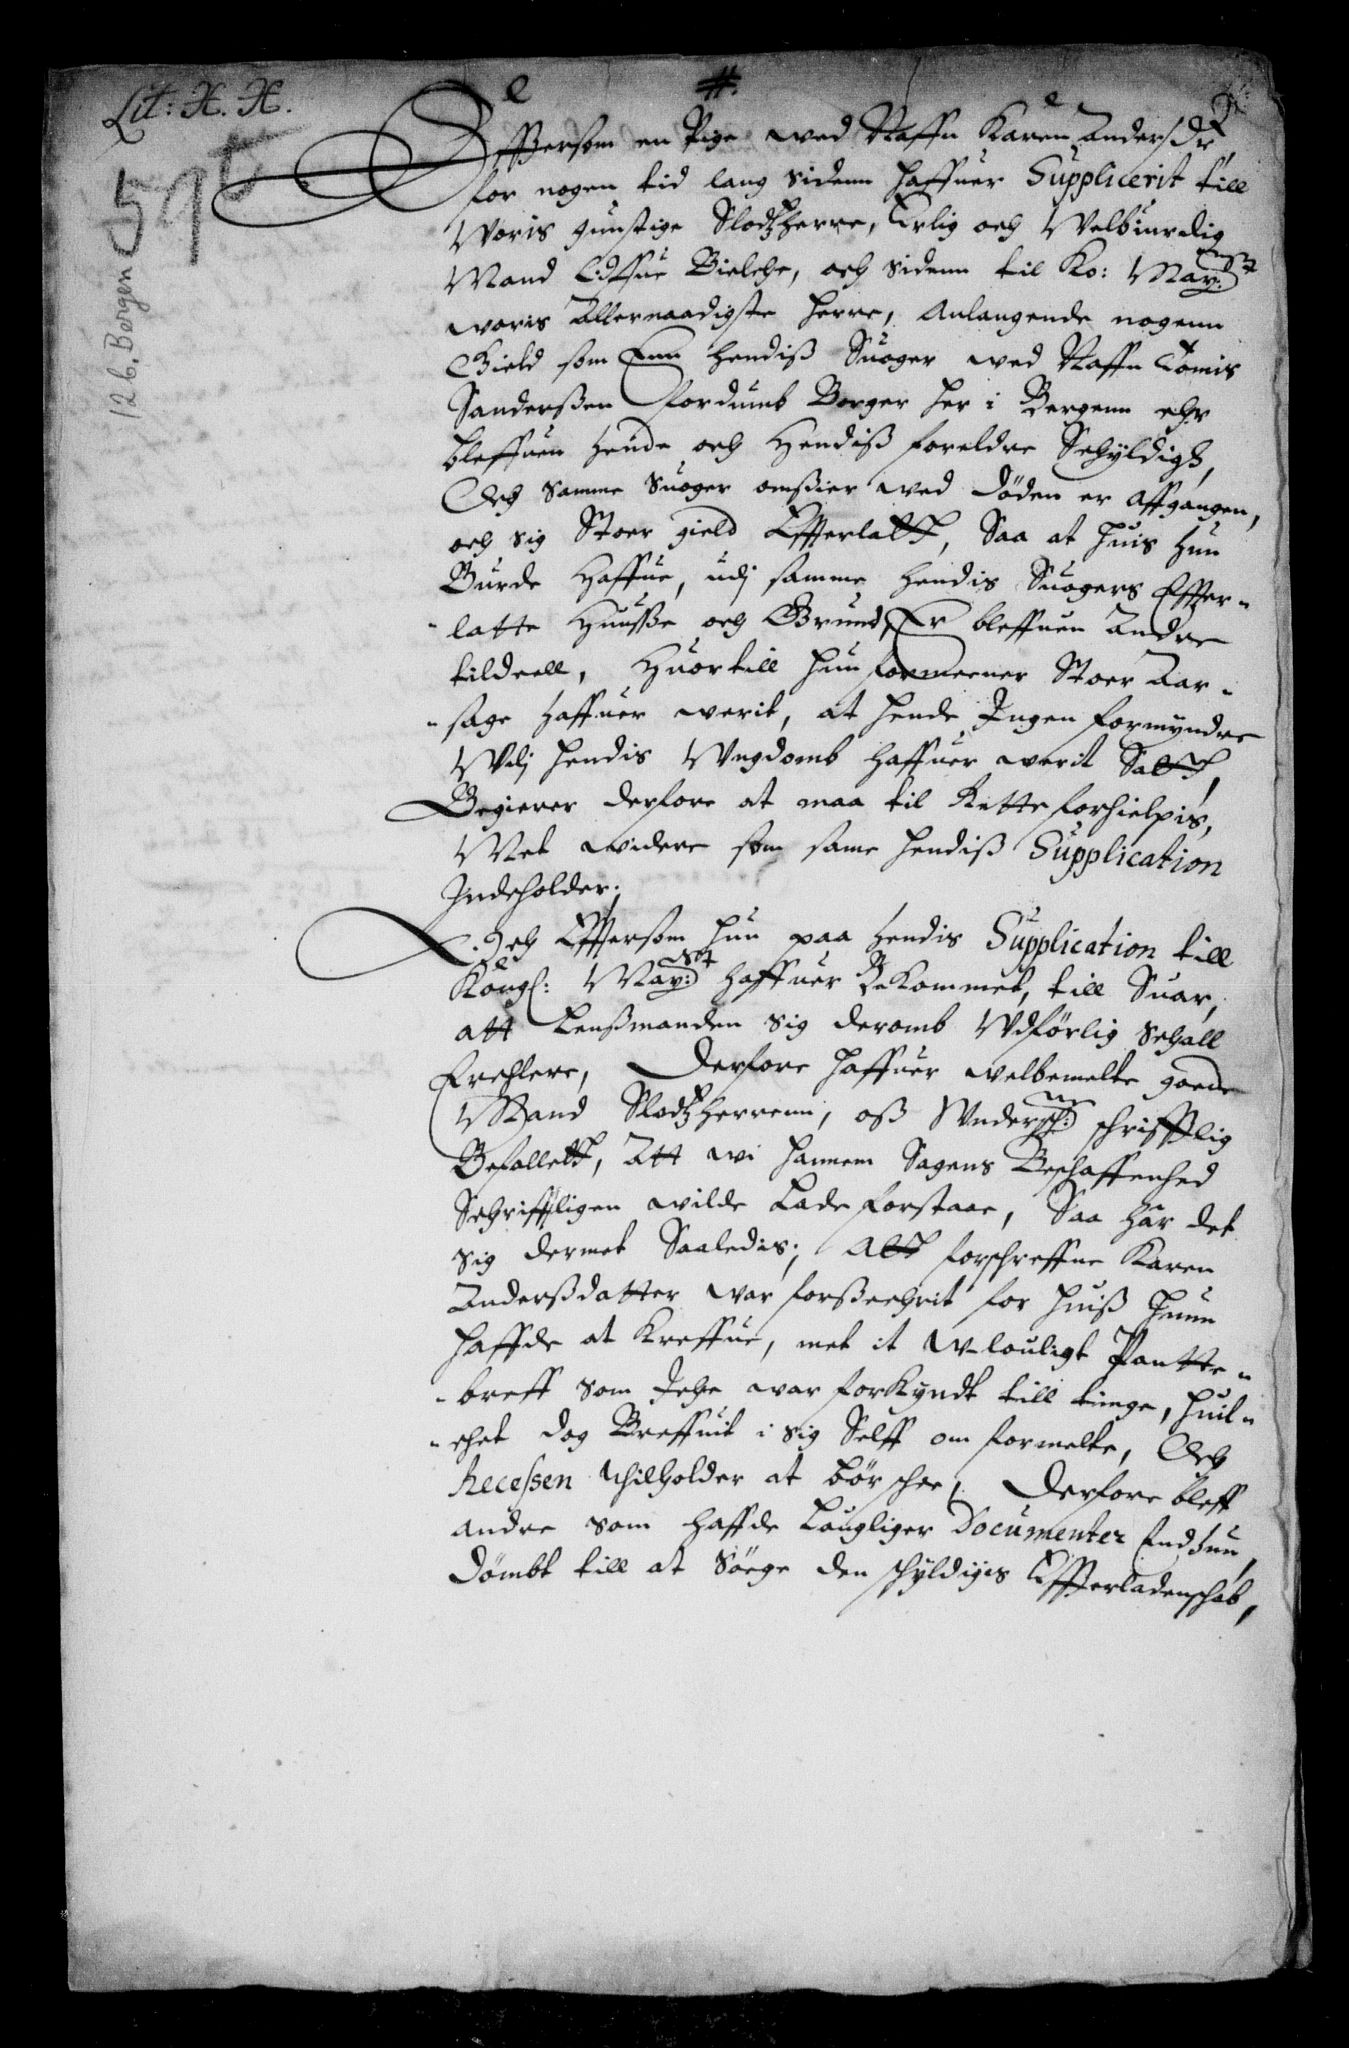 Lit: H. H.
59t
12b. Bergen
#.
Effttersom en Pige wed Naffn Karen Andersdr
for nogen tid lang sidenn haffuer Supplicerit till
Woris gunstige Slodtzherre, Erlig och Welbiurdig
Mand Eiffue Bielche, och sidenn til Ko: May:tt
woris Allernaadigste herre, Anlangende nogenn
Gield som Enn hendiß Suoger wed Naffn Tomis
Sanderßen fordumb Borger her i Bergenn ehr
bleffuen hende och Hendiß foreldre Schyldigh,
Och samme Suoger omßier wed döden er affgangen,
och sig Stoer gield Effterlatt, Saa at huis hun
Burde Haffue, udj samme hendis Suogers Effter-
-latte Huusße och Grund, Er bleffuen Andre
tildeell, Huortill hun formeener Stoer Aar-
-sage haffuer werit, at hende Ingen formyndre
Wdj hendis Wngdomb haffuer werit Satt,
Begierer derfore at maa til Rette forhielpis,
Met widere som same hendiß Supplication
Indeholder;
Och Effttersom hun paa hendis Supplication till
Kongl: May:tt haffuer Bekommet, till Suar,
att Lenßmanden sig deromb Wdförlig schall
Erchlere, Derfore haffuer welbemelte goede
Mand Slodtzherrenn, oß Wndersch: schrifftlig
Befallett, Att wi hannem Sagens Beschaffenhed
Schrifftligen wilde Lade forstaae, Saa har det
sig dermet Saaledis; Att forschreffne Karen
Anderßdatter war forßechrit for huiß hunn
haffde at Kreffue, met it W-louligt Pantte-
-breff som Iche war forkyndt till tinge, huil-
-chet dog Breffuit i sig Selff om formelte, Och
Recessen tilholder at bör schee, Derfore bleff
andre som haffde Lougliger Documenter End hun,
dömbt till at Söege den schyldigis Effterladenschab,